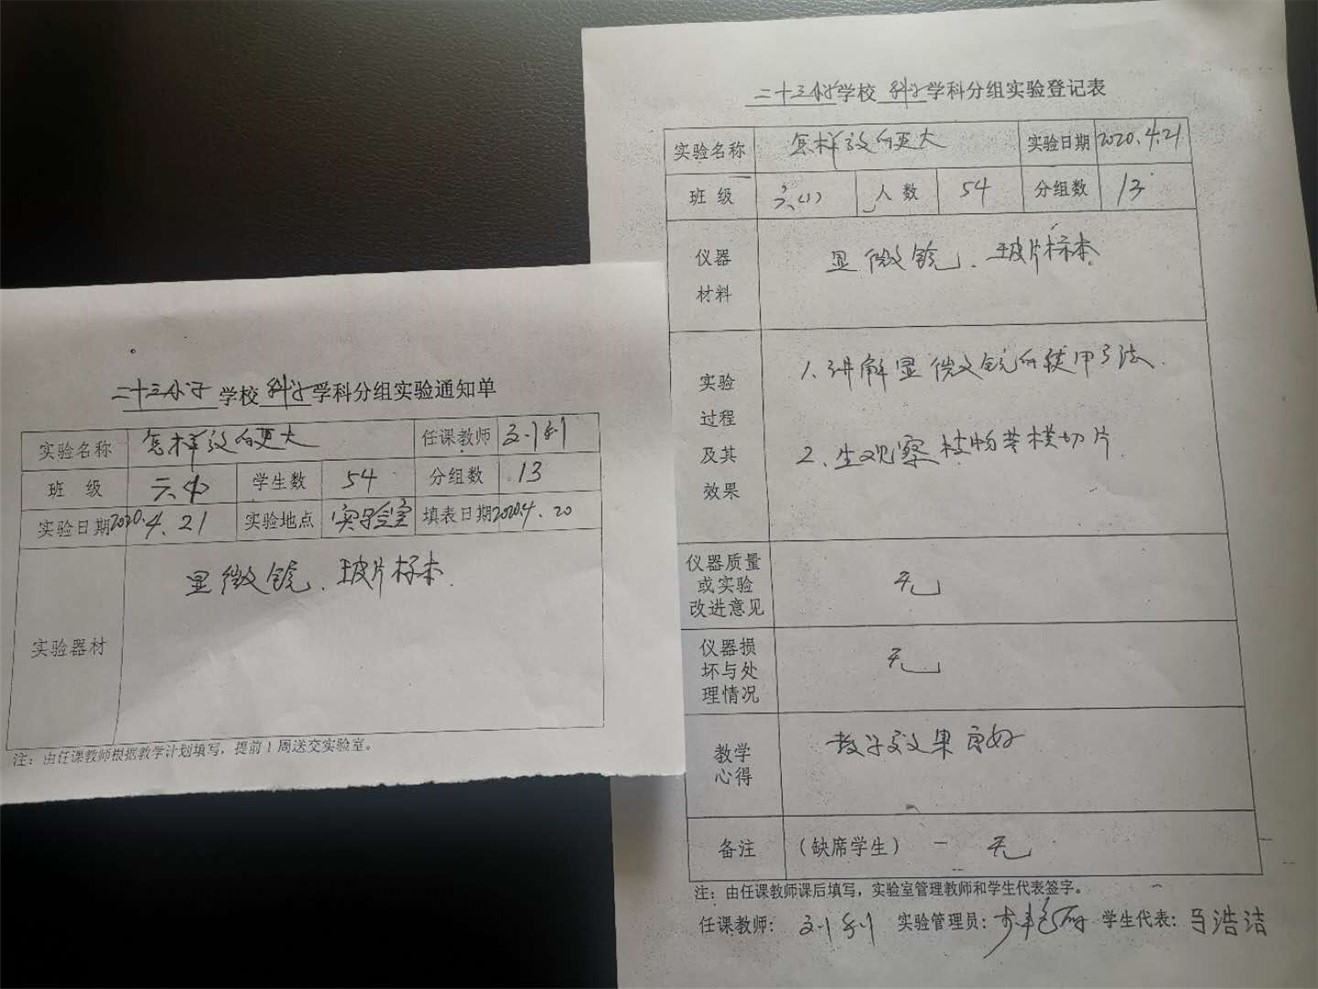 二十三小学 学校 科学 学科分组实验通知单
实验名称 怎样放的更大 任课教师 刘利
班 级 六(1) 学生数 54 分组数 13
实验日期 2020.4.21 实验地点 实验室 填表日期 2020.4.20
实验器材 显微镜、玻片标本.
注：由任课教师根据教学计划填写，提前1周送交实验室。
二十三小学 学校 科学 学科分组实验登记表
实验名称 怎样放的更大 实验日期 2020.4.21
班 级 六(1) 人 数 54 分组数 13
仪器
材料
显微镜、玻片标本.
实验
过程
及其
效果
1.讲解显微镜的使用方法.
2.生观察植物茎横切片.
仪器质量
或实验
改进意见
无
仪器损
坏与处
理情况
无
教学
心得
教学效果良好
备注 (缺席学生) 无
注：由任课教师课后填写，实验室管理教师和学生代表签字。
任课教师: 刘利 实验管理员: 学生代表: 马浩洁